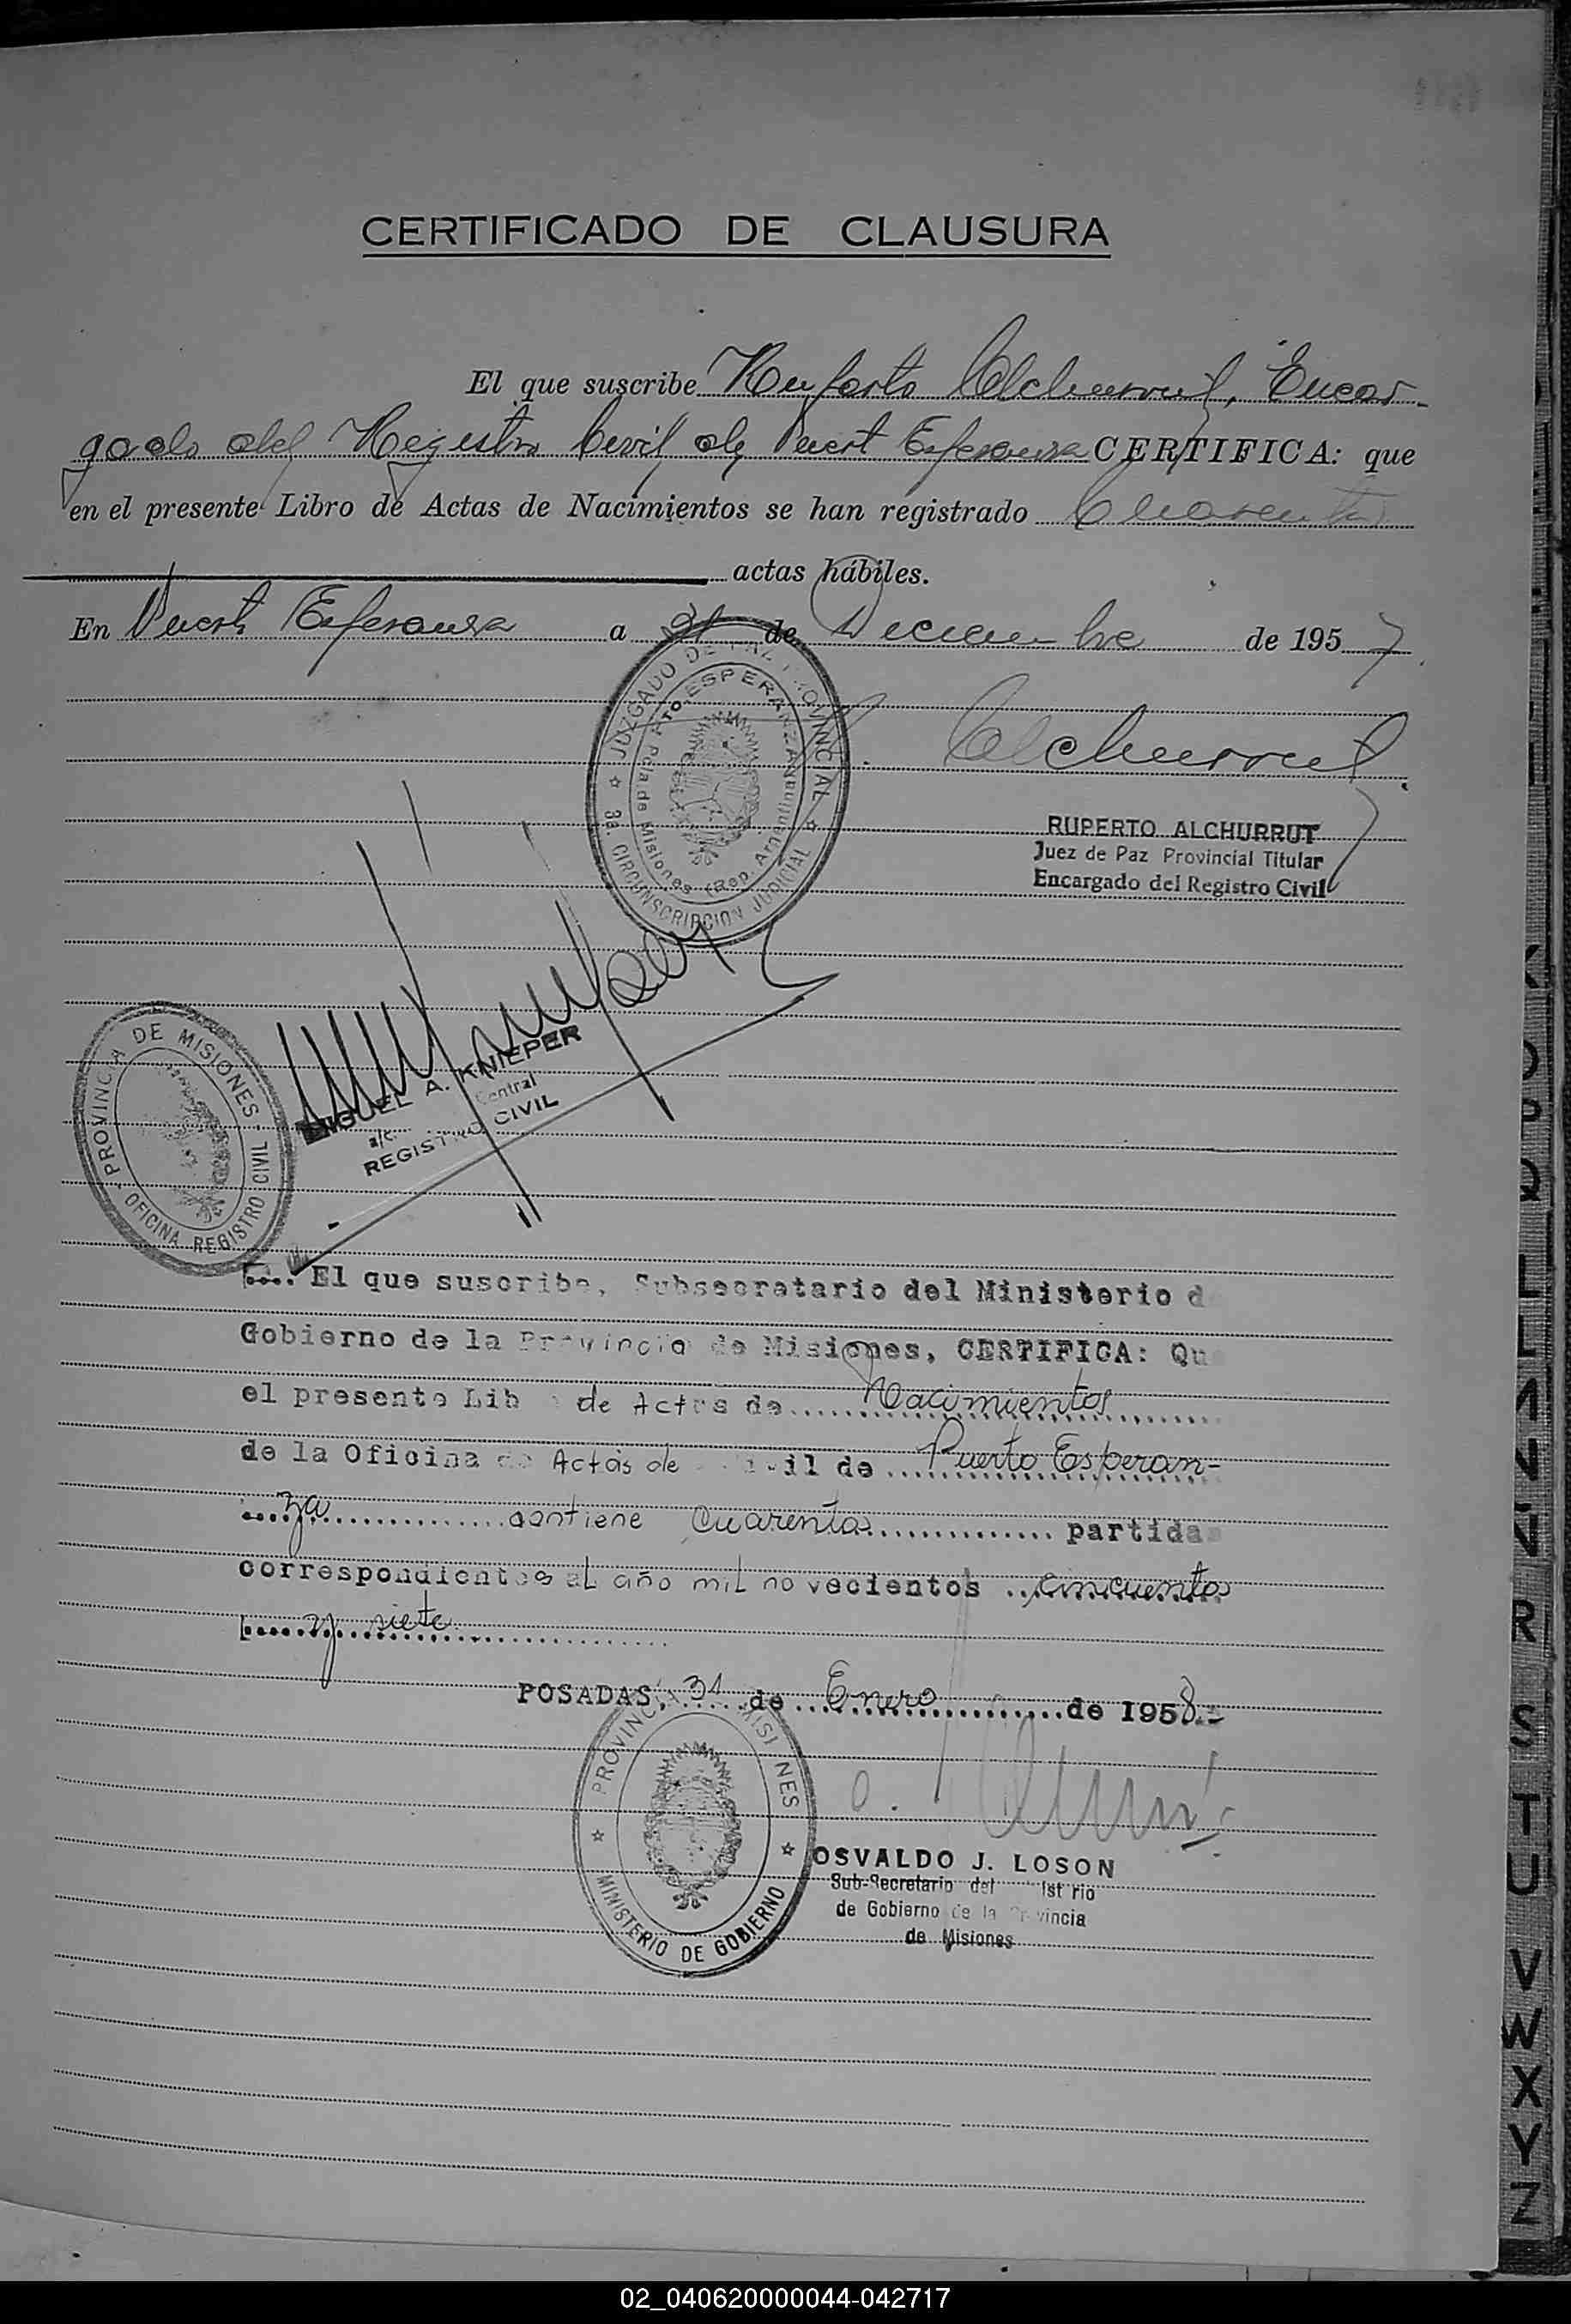 CERTIFICADO DE CLAUSURA
El que suscribe Ruperto Alchurrut, Encar-
gado del Registro Civil de Puerto Esperanza CERTIFICA: que
en el presente Libro de Actas de Nacimientos se han registrado Cuarenta
actas hábiles.
En Puerto Esperanza a 31 de Diciembre de 1957
JUZGADO DE PAZ PROVINCIAL
3a. CIRCUNSCRIPCION JUDICIAL
Pto. ESPERANZA
Pcia. de Misiones (Rep. Argentina)
R. Alchurrut
RUPERTO ALCHURRUT
Juez de Paz Provincial Titular
Encargado del Registro Civil
PROVINCIA DE MISIONES
OFICINA REGISTRO CIVIL
MIGUEL A. KNIEPER
a/c. Central
REGISTRO CIVIL
El que suscribe, Subsecretario del Ministerio de
Gobierno de la Provincia de Misiones, CERTIFICA: Que
el presente Lib de Actas de Nacimientos
de la Oficina de Actas de ivil de Puerto Esperan-
za contiene Cuarenta partidas
correspondientes al año mil novecientos cincuenta
y siete
POSADAS, 31 de Enero de 1958.-
PROVINCIA MISIONES
MINISTERIO DE GOBIERNO
OSVALDO J. LOSON
Sub-Secretario del ist rio
de Gobierno de la Provincia
de Misiones
L
L
M
N
Ñ
R
S
T
U
V
W
X
Y
Z
02_040620000044-042717